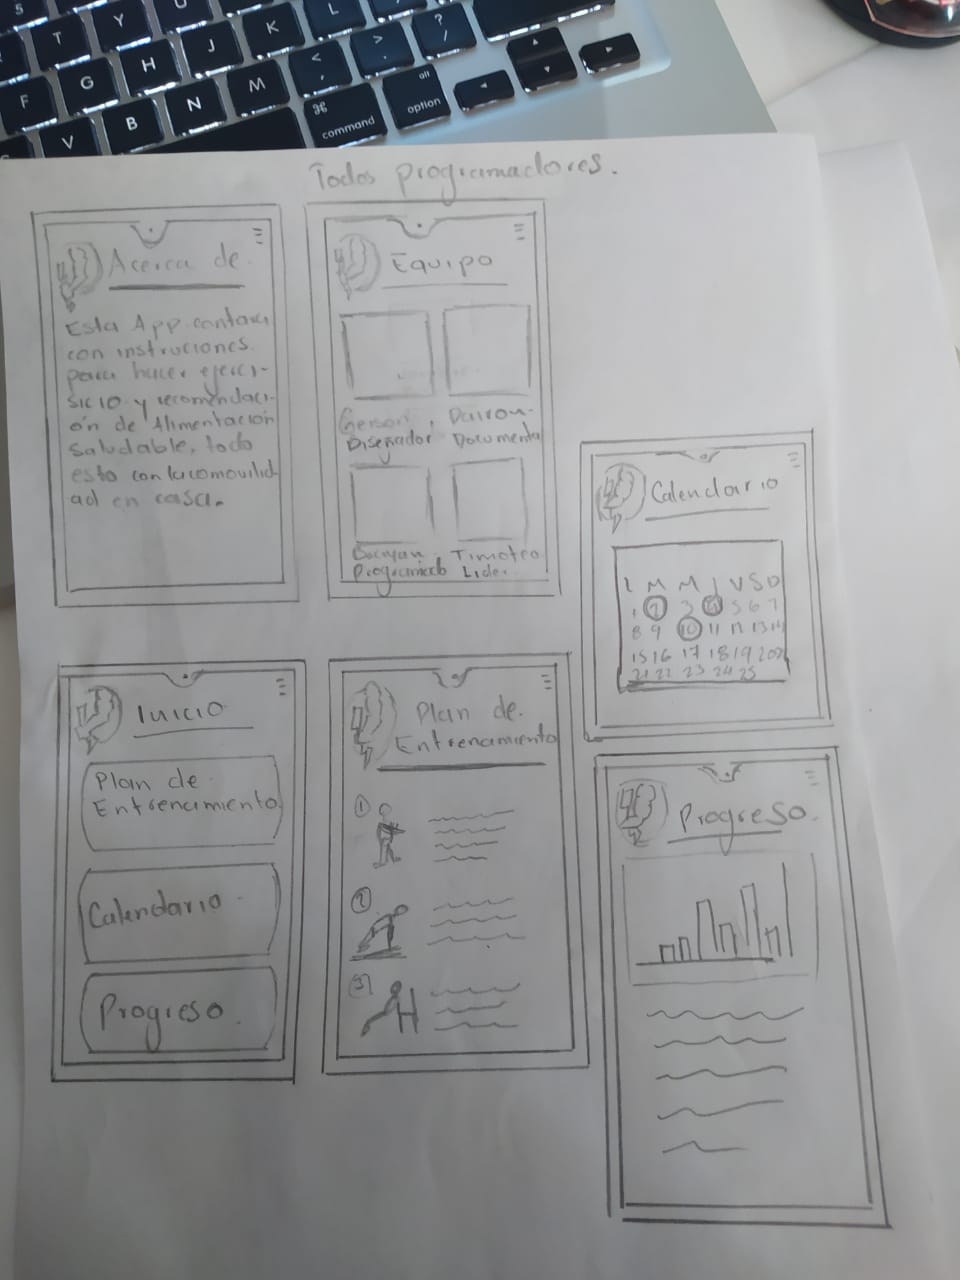 5
T
Y
U
L
?
/
F
G
H
J
K
>
.
<
,
V
B
N
M
⌘
command
alt
option
Todos programadores.
Acerca de.
Esta App contara
con instruciones
para hacer ejerci-
sicio y recomendaci-
ón de Alimentación
Saludable, todo
esto con la comovilid
ad en casa.
Equipo
Gerson
Diseñador
Documenta
Programado
Timoteo
Lider.
Calendario
L M M J V S D
1 2 3 4 5 6 7
8 9 10 11 12 13 14
15 16 17 18 19 20
21 22 23 24 25
Inicio
Plan de
Entrenamiento
Calendario
Progreso.
Plan de
Entrenamiento
1
2
3
Progreso.